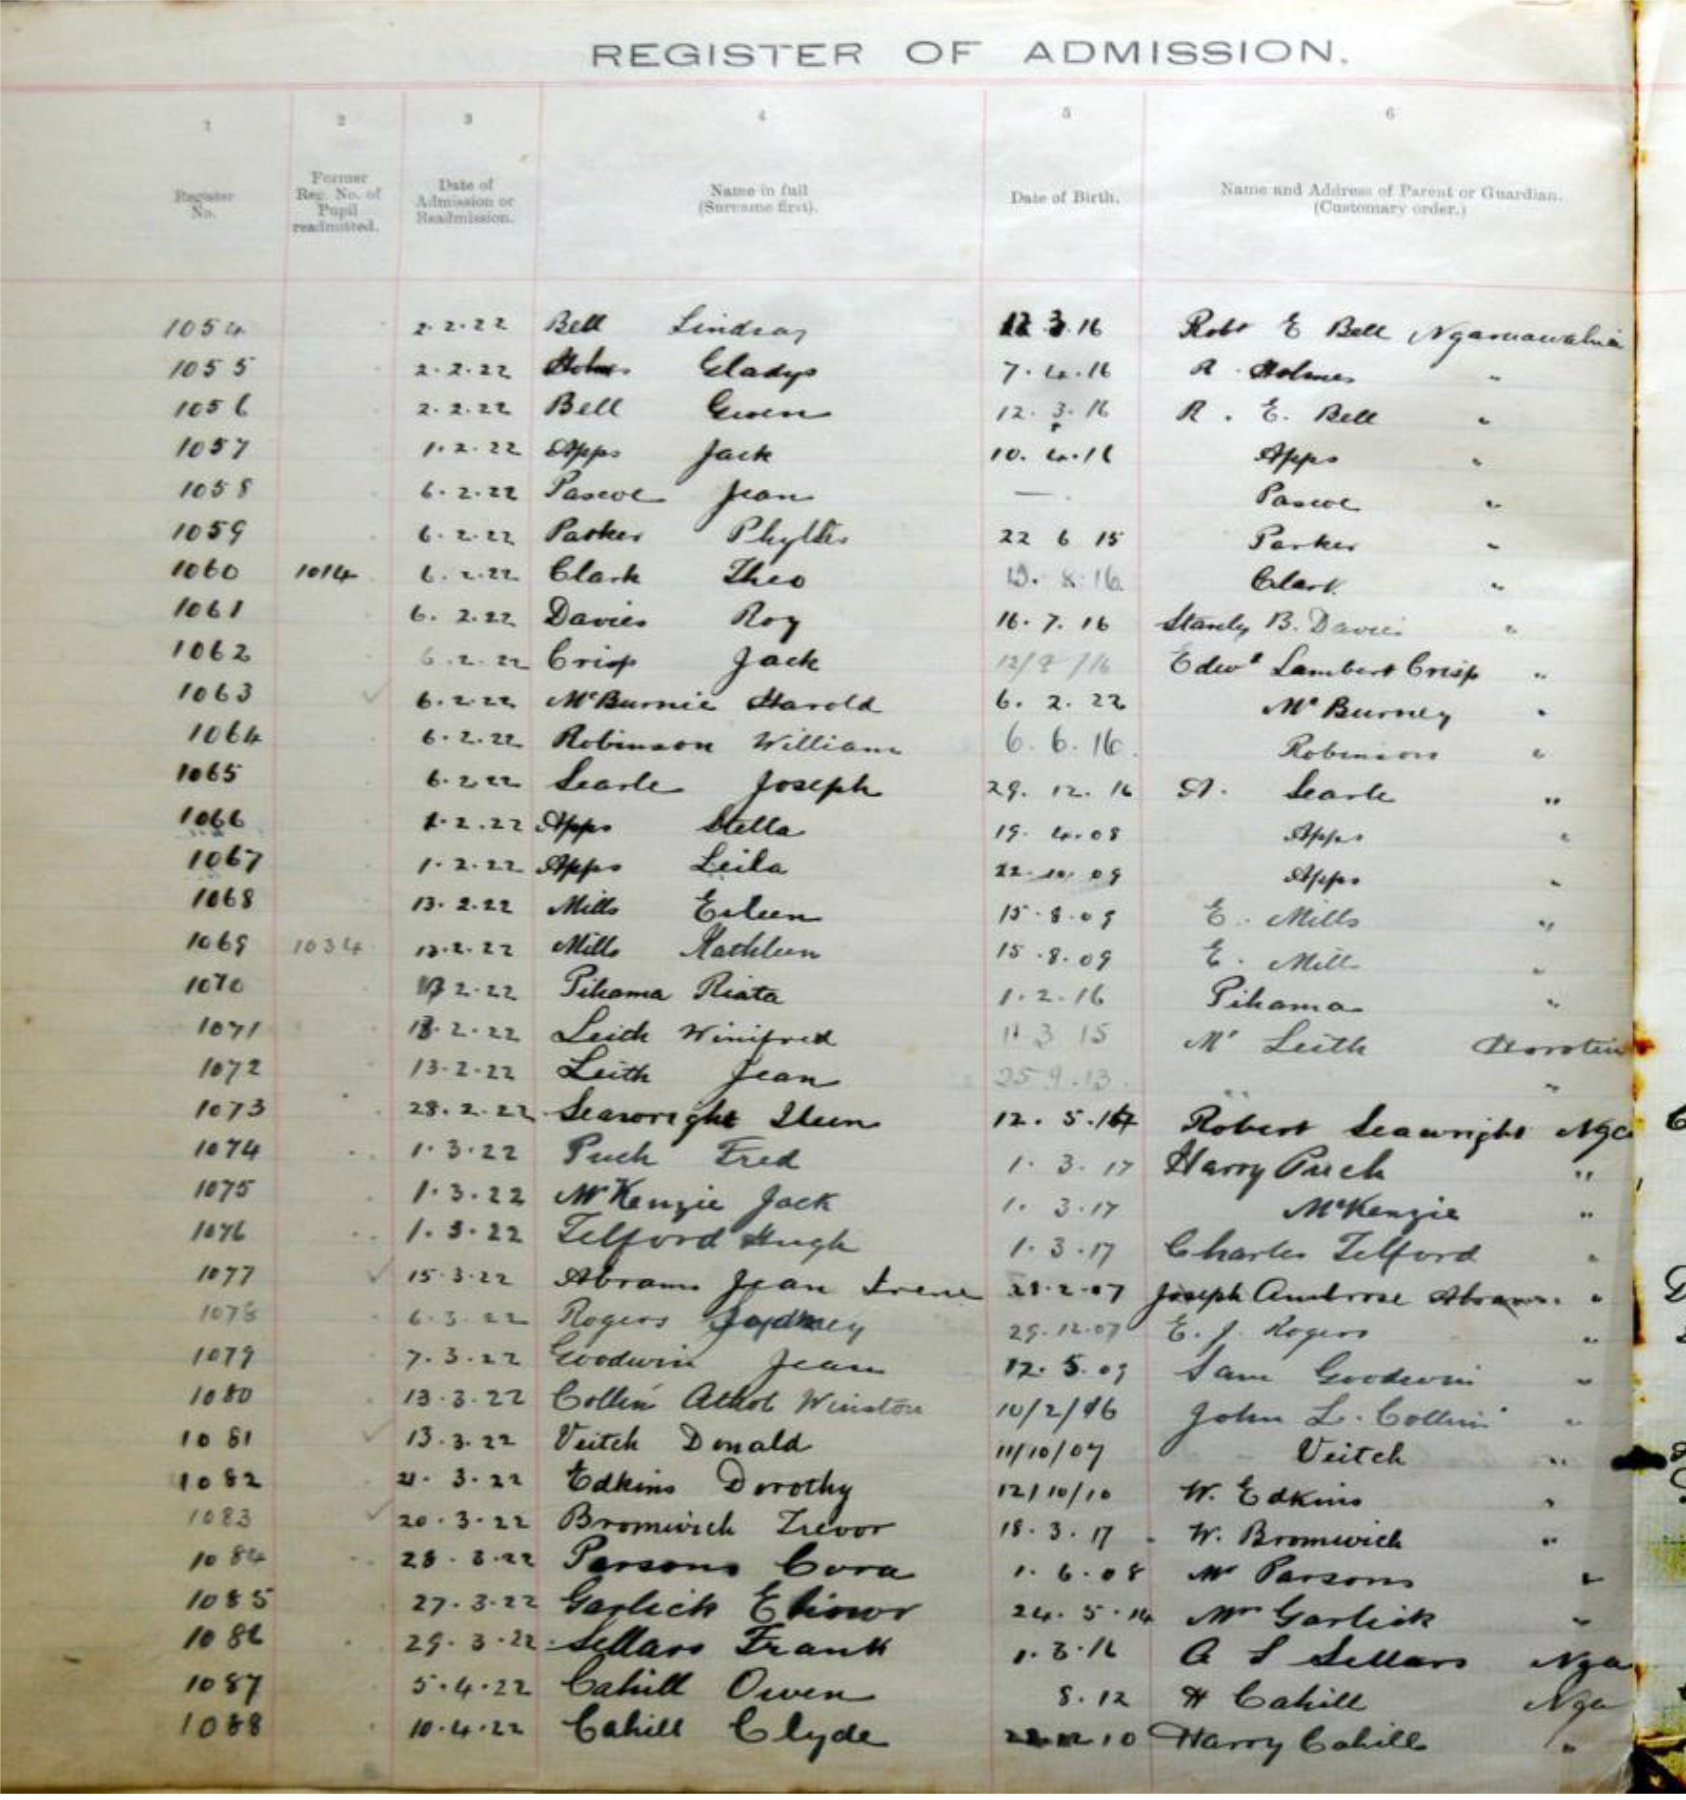 REGISTER OF ADMISSION.
1 2 3 4 5 6
Register No. Former Reg. No. of Pupil readmitted. Date of Admission or Readmission. Name in full (Surname first). Date of Birth. Name and Address of Parent or Guardian. (Customary order.)
1054 2.2.22 Bell Lindsay 3.16 Robt E Bell Ngaruawahia
1055 2.2.22 Holmes Gladys 7.4.16 R. Holmes "
1056 2.2.22 Bell Gwen 12.3.16 R. E. Bell "
1057 1.2.22 Apps Jack 10.4.16 Apps "
1058 6.2.22 Pascoe Jean — Pascoe "
1059 6.2.22 Parker Phyllis 22 6 15 Parker "
1060 1014 6.2.22 Clark Theo 8.16 Clark "
1061 6.2.22 Davies Roy 16.7.16 Stanley B. Davies "
1062 6.2.22 Crisp Jack 12/9/16 Edwd Lambert Crisp "
1063 6.2.22 McBurnie Harold 6.2.22 Mc Burney "
1064 6.2.22 Robinson William 6.6.16. Robinson "
1065 6.2.22 Searle Joseph 29.12.16 A. Searle "
1066 1.2.22 Apps Stella 19.4.08 Apps "
1067 1.2.22 Apps Leila 22.10.09 Apps "
1068 13.2.22 Mills Eileen 15.8.09 E. Mills "
1069 1034 13.2.22 Mills Kathleen 15.8.09 E. Mills "
1070 2.22 Pihama Riata 1.2.16 Pihama "
1071 13.2.22 Leith Winifred 11 3 15 Mr Leith Horotiu
1072 13.2.22 Leith Jean 25 9.13. " "
1073 28.2.22 Seawright Ileen 12.5. Robert Seawright Nga
1074 1.3.22 Puch Fred 1.3.17 Harry Puch "
1075 1.3.22 McKenzie Jack 1.3.17 McKenzie "
1076 1.3.22 Telford Hugh 1.3.17 Charles Telford "
1077 15.3.22 Abrams Jean Irene 28.2.07 Joseph Ambrose Abrams "
1078 6.3.22 Rogers 29.12.07 E. J. Rogers "
1079 7.3.22 Goodwin Jean 12.5.09 Sam Goodwin "
1080 13.3.22 Collins Athol Winston 10/2/16 John L. Collins "
1081 13.3.22 Veitch Donald 11/10/07 Veitch "
1082 21.3.22 Edkins Dorothy 12/10/10 W. Edkins "
1083 20.3.22 Bromwich Trevor 18.3.17 W. Bromwich "
1084 28.3.22 Parsons Cora 1.6.08 Mr Parsons "
1085 27.3.22 Garlick Elinour 24.5.14 Mr Garlick "
1086 29.3.22 Sellars Frank 1.3.16 A S Sellars Nga
1087 5.4.22 Cahill Owen 8.12 H Cahill Nga
1088 10.4.22 Cahill Clyde 10 Harry Cahill "